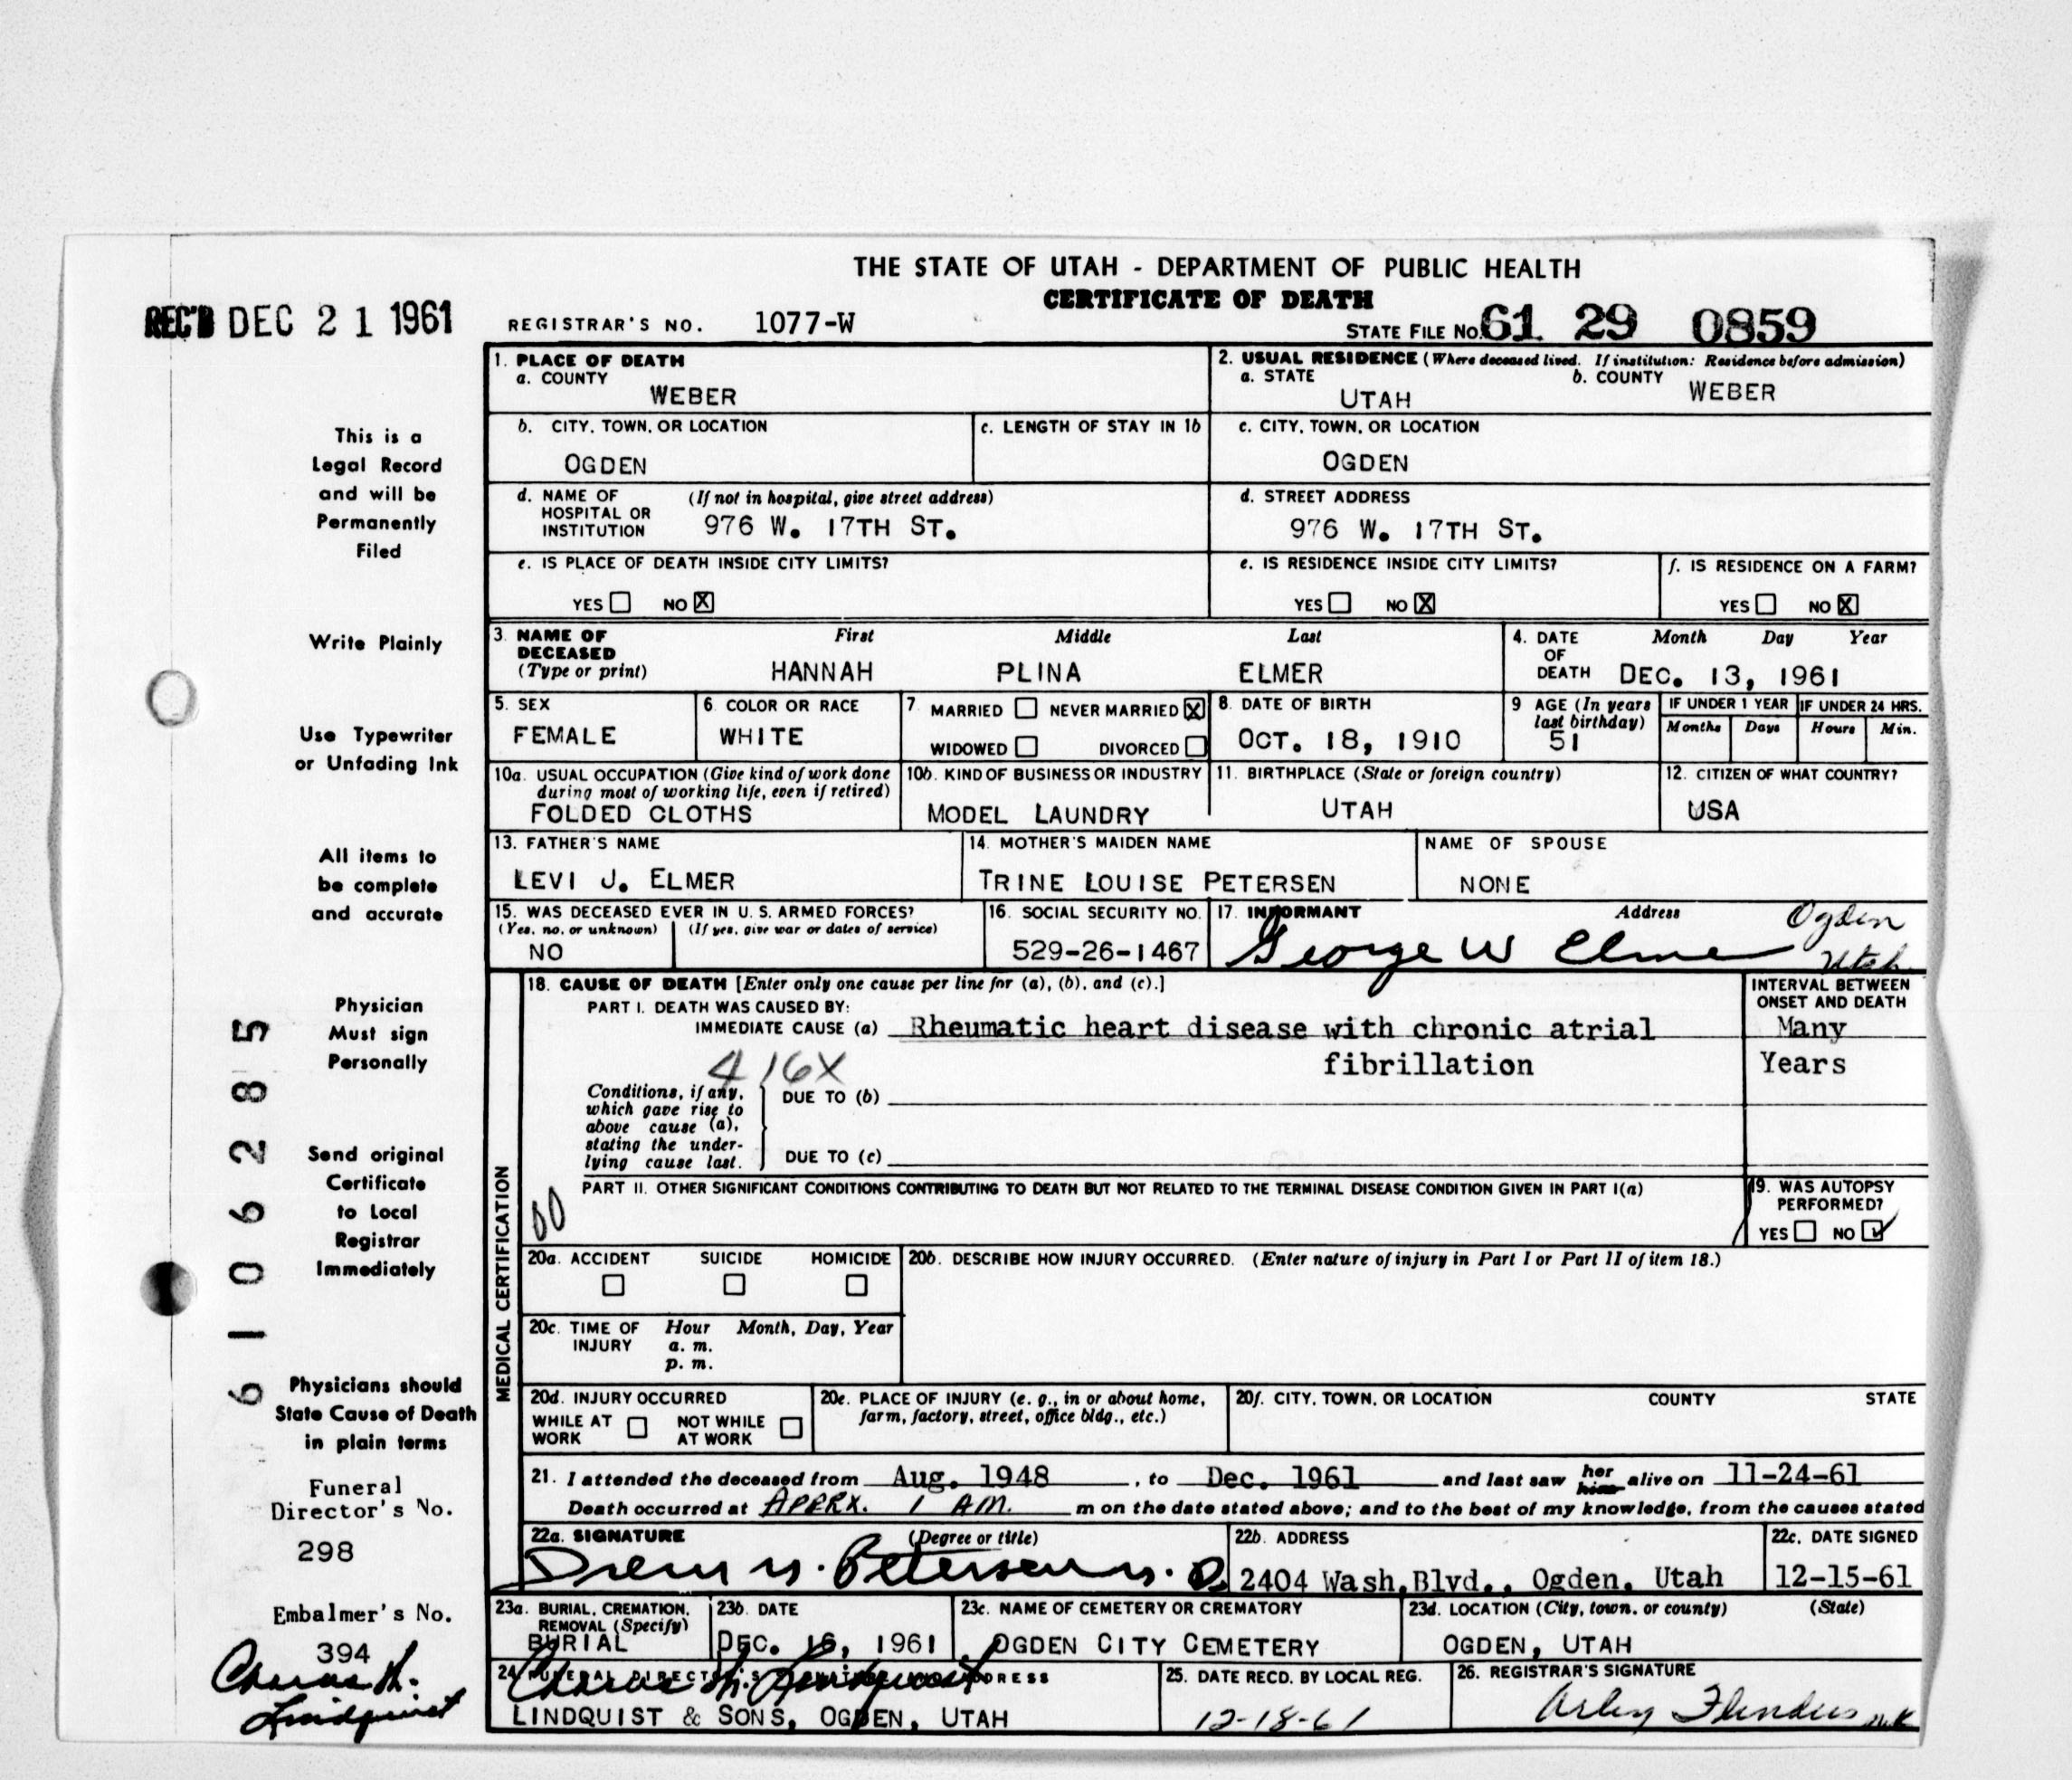 THE STATE OF UTAH - DEPARTMENT OF PUBLIC HEALTH
CERTIFICATE OF DEATH
REC'D DEC 21 1961
REGISTRAR'S NO. 1077-W
STATE FILE NO. 61 29 0859
1. PLACE OF DEATH
a. COUNTY
WEBER
2. USUAL RESIDENCE (Where deceased lived. If institution: Residence before admission)
a. STATE b. COUNTY
UTAH WEBER
b. CITY, TOWN, OR LOCATION
OGDEN
c. LENGTH OF STAY IN 1b
c. CITY, TOWN, OR LOCATION
OGDEN
d. NAME OF HOSPITAL OR INSTITUTION (If not in hospital, give street address)
976 W. 17TH ST.
d. STREET ADDRESS
976 W. 17TH ST.
e. IS PLACE OF DEATH INSIDE CITY LIMITS?
YES NO X
e. IS RESIDENCE INSIDE CITY LIMITS?
YES NO X
f. IS RESIDENCE ON A FARM?
YES NO X
3. NAME OF DECEASED (Type or print)
First Middle Last
HANNAH PLINA ELMER
4. DATE OF DEATH
Month Day Year
DEC. 13, 1961
5. SEX
FEMALE
6. COLOR OR RACE
WHITE
7. MARRIED NEVER MARRIED X
WIDOWED DIVORCED
8. DATE OF BIRTH
OCT. 18, 1910
9 AGE (In years last birthday)
51
IF UNDER 1 YEAR IF UNDER 24 HRS.
Months Days Hours Min.
10a. USUAL OCCUPATION (Give kind of work done during most of working life, even if retired)
FOLDED CLOTHS
10b. KIND OF BUSINESS OR INDUSTRY
MODEL LAUNDRY
11. BIRTHPLACE (State or foreign country)
UTAH
12. CITIZEN OF WHAT COUNTRY?
USA
13. FATHER'S NAME
LEVI J. ELMER
14. MOTHER'S MAIDEN NAME
TRINE LOUISE PETERSEN
NAME OF SPOUSE
NONE
15. WAS DECEASED EVER IN U. S. ARMED FORCES?
(Yes, no, or unknown) (If yes, give war or dates of service)
NO
16. SOCIAL SECURITY NO.
529-26-1467
17. INFORMANT Address
George W Elmer Ogden Utah
MEDICAL CERTIFICATION
18. CAUSE OF DEATH [Enter only one cause per line for (a), (b), and (c).]
PART I. DEATH WAS CAUSED BY:
IMMEDIATE CAUSE (a) Rheumatic heart disease with chronic atrial
fibrillation
416X
INTERVAL BETWEEN ONSET AND DEATH
Many
Years
Conditions, if any, which gave rise to above cause (a), stating the underlying cause last.
DUE TO (b)
DUE TO (c)
PART II. OTHER SIGNIFICANT CONDITIONS CONTRIBUTING TO DEATH BUT NOT RELATED TO THE TERMINAL DISEASE CONDITION GIVEN IN PART I(a)
00
19. WAS AUTOPSY PERFORMED?
YES NO ✓
20a. ACCIDENT SUICIDE HOMICIDE
20b. DESCRIBE HOW INJURY OCCURRED. (Enter nature of injury in Part I or Part II of item 18.)
20c. TIME OF INJURY Hour Month, Day, Year
a. m.
p. m.
20d. INJURY OCCURRED
WHILE AT WORK NOT WHILE AT WORK
20e. PLACE OF INJURY (e. g., in or about home, farm, factory, street, office bldg., etc.)
20f. CITY, TOWN, OR LOCATION COUNTY STATE
21. I attended the deceased from Aug. 1948, to Dec. 1961 and last saw her him alive on 11-24-61
Death occurred at APPRX. 1 AM. m on the date stated above; and to the best of my knowledge, from the causes stated
22a. SIGNATURE (Degree or title)
Petersen M. D.
22b. ADDRESS
2404 Wash.Blvd., Ogden, Utah
22c. DATE SIGNED
12-15-61
23a. BURIAL, CREMATION, REMOVAL (Specify)
BURIAL
23b. DATE
DEC. 16, 1961
23c. NAME OF CEMETERY OR CREMATORY
OGDEN CITY CEMETERY
23d. LOCATION (City, town, or county) (State)
OGDEN, UTAH
24. FUNERAL DIRECTOR'S ADDRESS
Lindquist
LINDQUIST & SONS, OGDEN, UTAH
25. DATE RECD. BY LOCAL REG.
12-18-61
26. REGISTRAR'S SIGNATURE
Flinders
This is a
Legal Record
and will be
Permanently
Filed
Write Plainly
Use Typewriter
or Unfading Ink
All items to
be complete
and accurate
Physician
Must sign
Personally
Send original
Certificate
to Local
Registrar
Immediately
Physicians should
State Cause of Death
in plain terms
Funeral
Director's No.
298
Embalmer's No.
394
Lindquist
61 0 6285